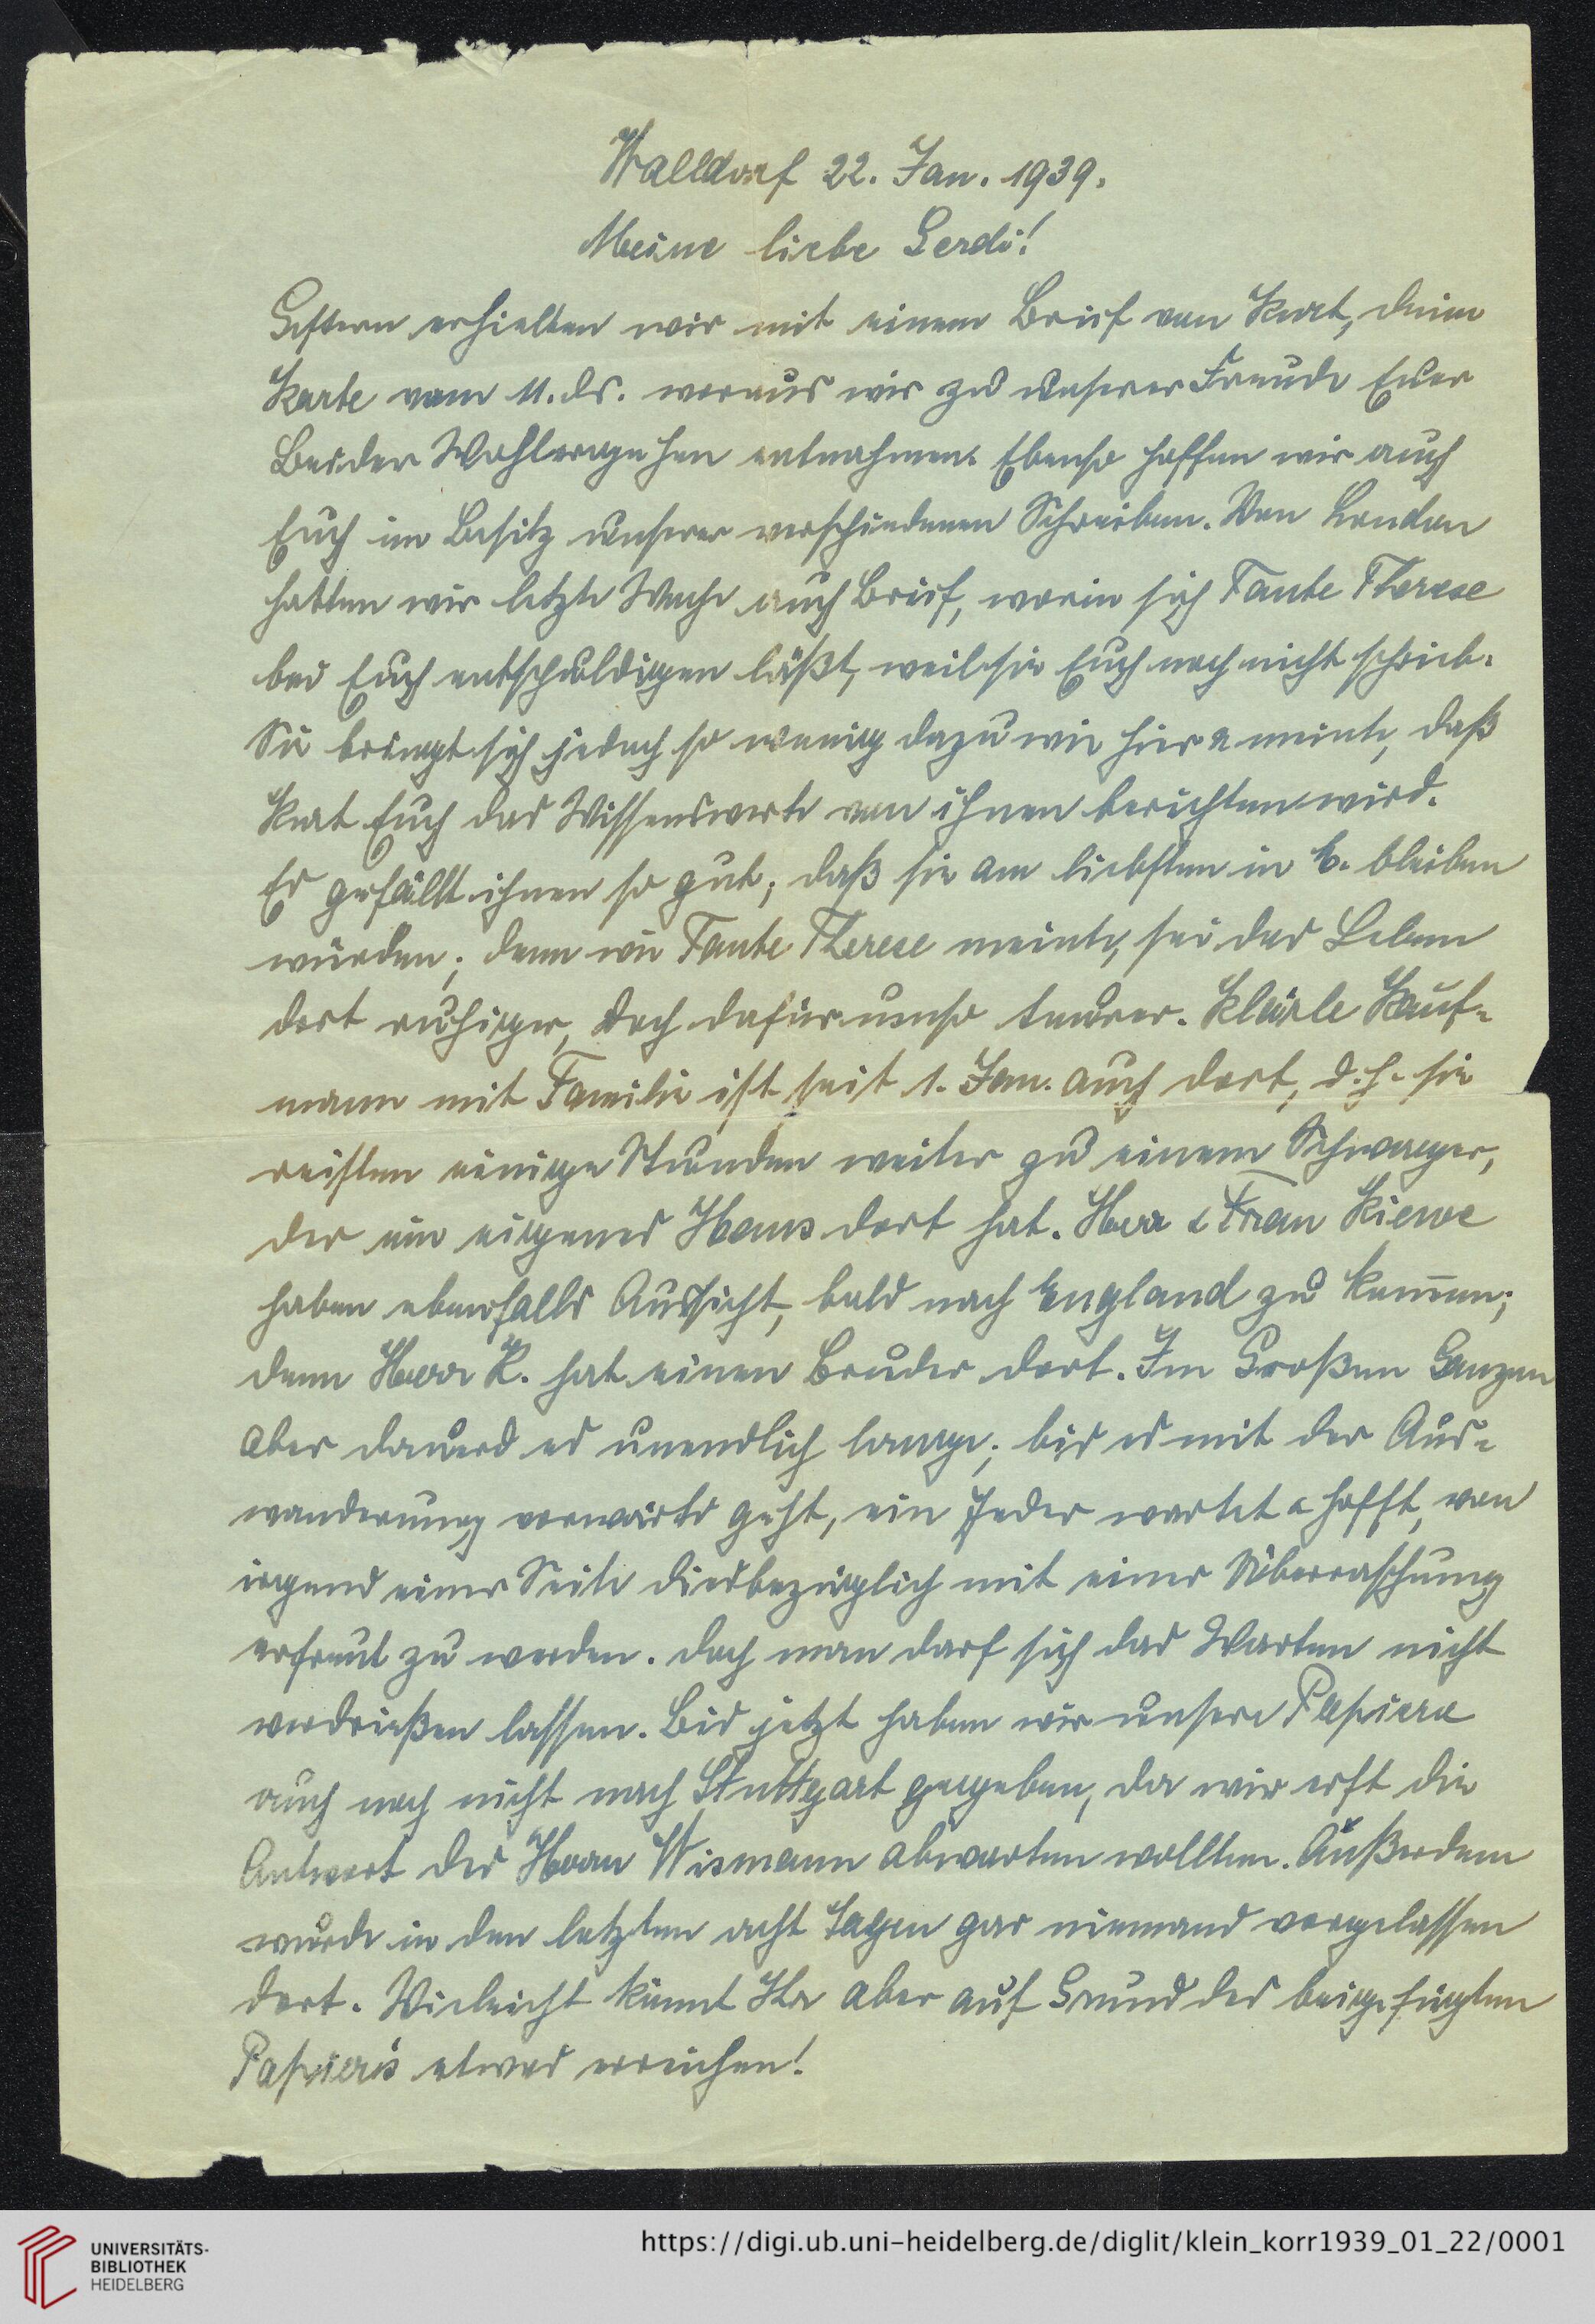 Walldorf 22. Jan. 1939.
Meine liebe Gerdi!
Gestern erhielten wir mit einem Brief von Kurt, deine
Karte vom 11. ds. woraus wir zu unserer Freude Euer
Beider Wohlergehen entnahmen. Ebenso hoffen wir auch
Euch im Besitz unserer verschiedenen Schreiben. Von London
hatten wir letzte Woche auch Brief, worin sich Tante Therese
bei Euch entschuldigen läßt, weil sie Euch noch nicht schrieb.
Sie bringt sich jedoch so wenig dazu wie hier & meinte, daß
Kurt Euch das Wissenswerte von ihnen berichten wird.
Es gefällt ihnen so gut, daß sie am liebsten in bleiben
würden; denn wie Tante Therese meinte, sei das Leben
dort ruhiger, doch dafür umso teurer. Klärle Kauf-
mann mit Familie ist seit 1. Jan. auch dort, d. h. sie
reisten einige Stunden weiter zu einem Schwager,
der ein eigenes Haus dort hat. Herr & Frau Kiewe
haben ebenfalls Aussicht, bald nach England zu kommen;
denn Herr K. hat einen Bruder dort. Im Großen Ganzen
aber dauerd es unendlich lange, bis es mit der Aus-
wanderung vorwärts geht, ein Jeder wartet & hofft, von
irgend einer Seite diesbezüglich mit einer Überraschung
erfreut zu werden. Doch man darf sich das Warten nicht
verdrießen lassen. Bis jetzt haben wir unsere Papiere
auch noch nicht nach Stuttgart gegeben, da wir erst die
Antwort des Herrn Wismann abwarten wollten. Außerdem
wurde in den letzten acht Tagen gar niemand vorgelassen
dort. Vieleicht könnt Ihr aber auf Grund des beigefügten
Papiers etwas erreichen!
UNIVERSITÄTS-
BIBLIOTHEK
HEIDELBERG
https://digi.ub.uni-heidelberg.de/diglit/klein_korr1939_01_22/0001